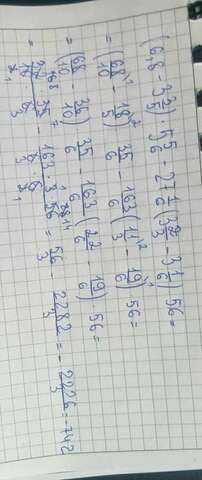 (6,8 - 3 3/5) · 5 5/6 - 27 1/6 (3 2/3 - 3 1/6) · 56 =
= (68/10 - 18/5) · 35/6 - 163/6 (11/3 - 19/6) · 56 =
= (68/10 - 36/10) · 35/6 - 163/6 (22/6 - 19/6) · 56 =
= 32/10 · 35/6 - 163/6 · 3/6 · 56 = 56/3 - 2282/3 = - 2226/3 = -742